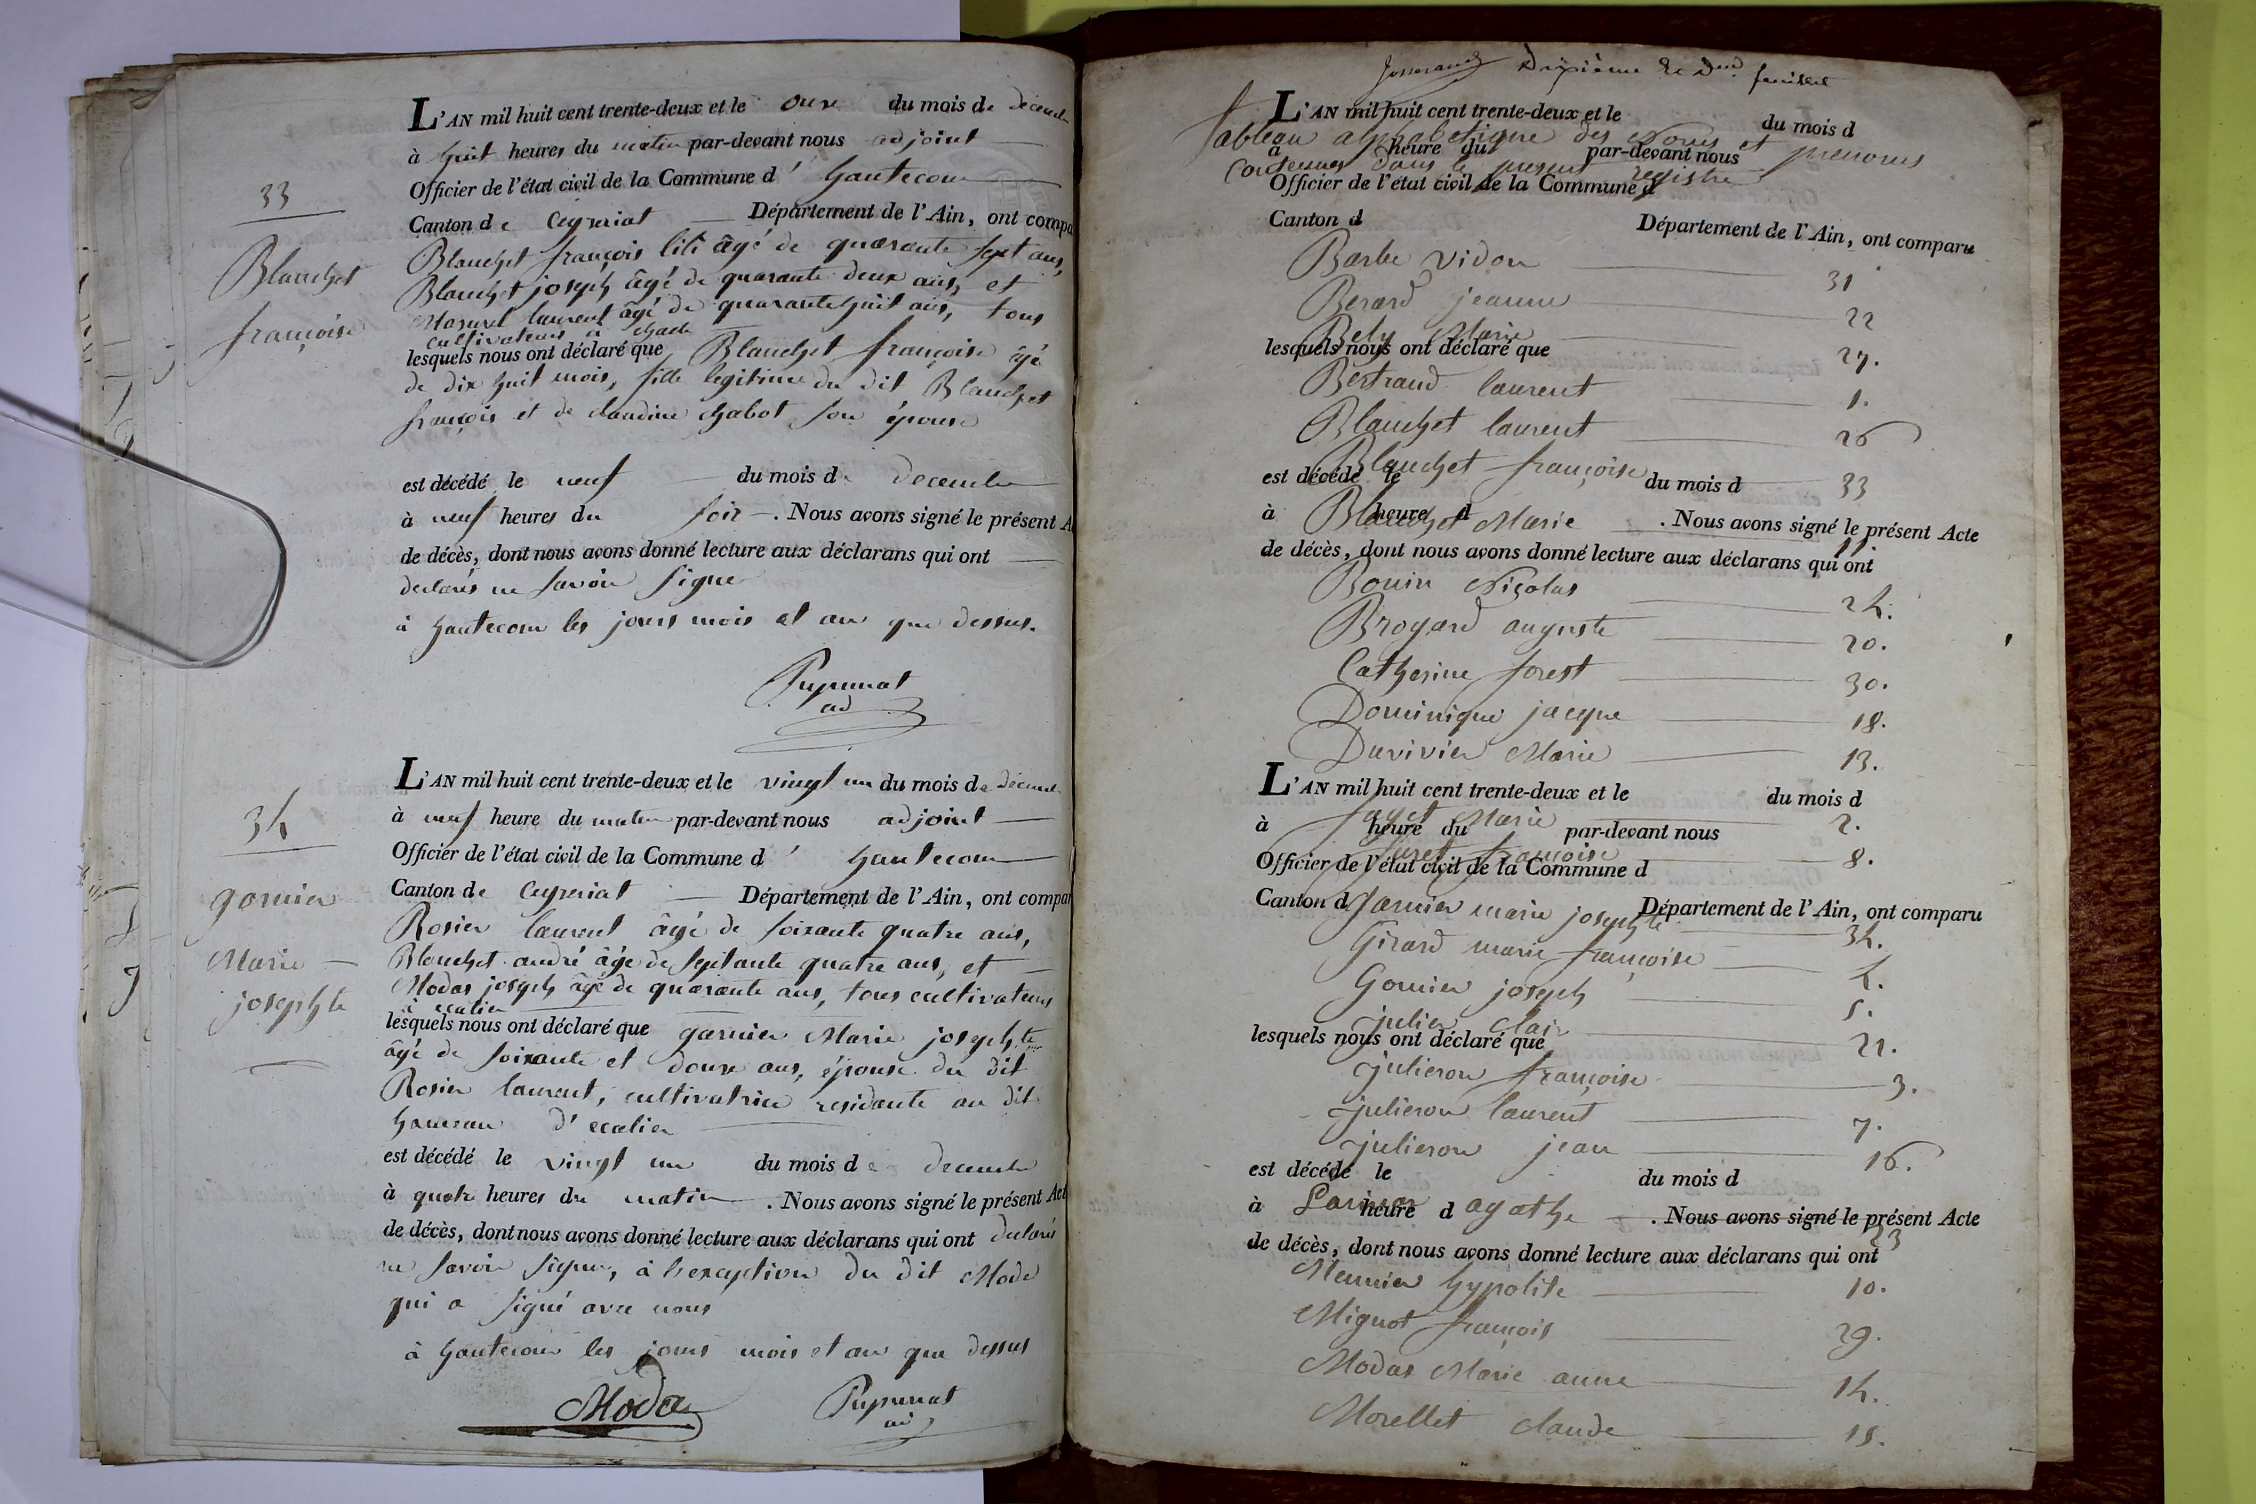 L'AN mil huit cent trente-deux et le onze du mois de décemb
à huit heures du matin par-devant nous adjoint
Officier de l'état civil de la Commune d' hautecour
33
Canton de Ceyzeriat Département de l'Ain, ont compa
Blanchet françois liti âgé de quarante sept ans,
Blanchet joseph âgé de quarante deux ans, et
laurent âgé de quarante huit ans, tous
cultivateurs à
Blanchet
françoise
lesquels nous ont déclaré que Blanchet françoise âgé
de dix huit mois, fille legitime du dit Blanchet
françois et de claudine chabot son épouse
est décédé le neuf du mois de decembre
à neuf heures du soir . Nous avons signé le présent A
de décès, dont nous avons donné lecture aux déclarans qui ont
declarés ne savoir signer
à hautecour les jours mois et an que dessus.
Pupunat
ad
L'AN mil huit cent trente-deux et le vingt un du mois de décemb
34
à neuf heure du matin par-devant nous adjoint
Officier de l'état civil de la Commune d' hautecour
Canton de Ceyzeriat Département de l'Ain, ont compar
garnier
Marie
josephte
Rosier laurent âgé de soixante quatre ans,
Blanchet andré âgé de septante quatre ans, et
Modas joseph âgé de quarante ans, tous cultivateurs
à ecalier
lesquels nous ont déclaré que garnier Marie josephte
âgé de soixante et douze ans, épouse du dit
Rosier laurent, cultivatrice residante au dit
hameau d'ecalier
est décédé le vingt un du mois de decembre
à quatre heures du matin . Nous avons signé le présent Act
de décès, dont nous avons donné lecture aux déclarans qui ont declarés
ne savoir signer, à l'exception du dit Moda
qui a signé avec nous
à hautecour les jours mois et an que dessus
Moda
Pupunat
ad
Josserand Dixième et feuillet
L'AN mil huit cent trente-deux et le du mois d
Tableau alphabetique des Noms et prenoms
à heure du par-devant nous
contenues dans le present registre
Officier de l'état civil de la Commune d
Canton d Département de l'Ain, ont comparu
Barbe vidon 31
Berard jeanne 22
Bely Marie 27.
lesquels nous ont déclaré que
Bertrand laurent 1.
Blanchet laurent 26
Blanchet françoise 33
est décédé le du mois d
à heure d . Nous avons signé le présent Acte
Blanchet Marie 11.
de décès, dont nous avons donné lecture aux déclarans qui ont
Bouin Nicolas 24.
Brogard auguste 20.
Catherine forest 30.
Dominique jacque 18.
Duvivier Marie 13.
L'AN mil huit cent trente-deux et le du mois d
Marie 2.
à heure du par-devant nous
françoise 8.
Officier de l'état civil de la Commune d
Canton d Département de l'Ain, ont comparu
Garnier marie josephte 34.
Girard marie françoise 4.
Gornier joseph 5.
julier clair 21.
lesquels nous ont déclaré que
julieron françoise 3.
julieron laurent 7.
julieron jean 16.
est décédé le du mois d
à heure d . Nous avons signé le présent Acte
agathe 23
de décès, dont nous avons donné lecture aux déclarans qui ont
Meunier hypolite 10.
Mignot françois 29.
Modas Marie anne 14.
Morellet claude 15.